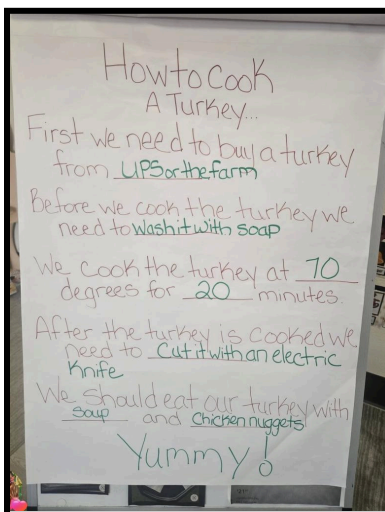 How to Cook
A Turkey...
First we need to buy a turkey
from UPS or the farm
Before we cook the turkey we
need to wash it with soap
We cook the turkey at 70
degrees for 20 minutes.
After the turkey is cooked we
need to Cut it with an electric
Knife
We should eat our turkey with
soup and Chicken nuggets!
Yummy!